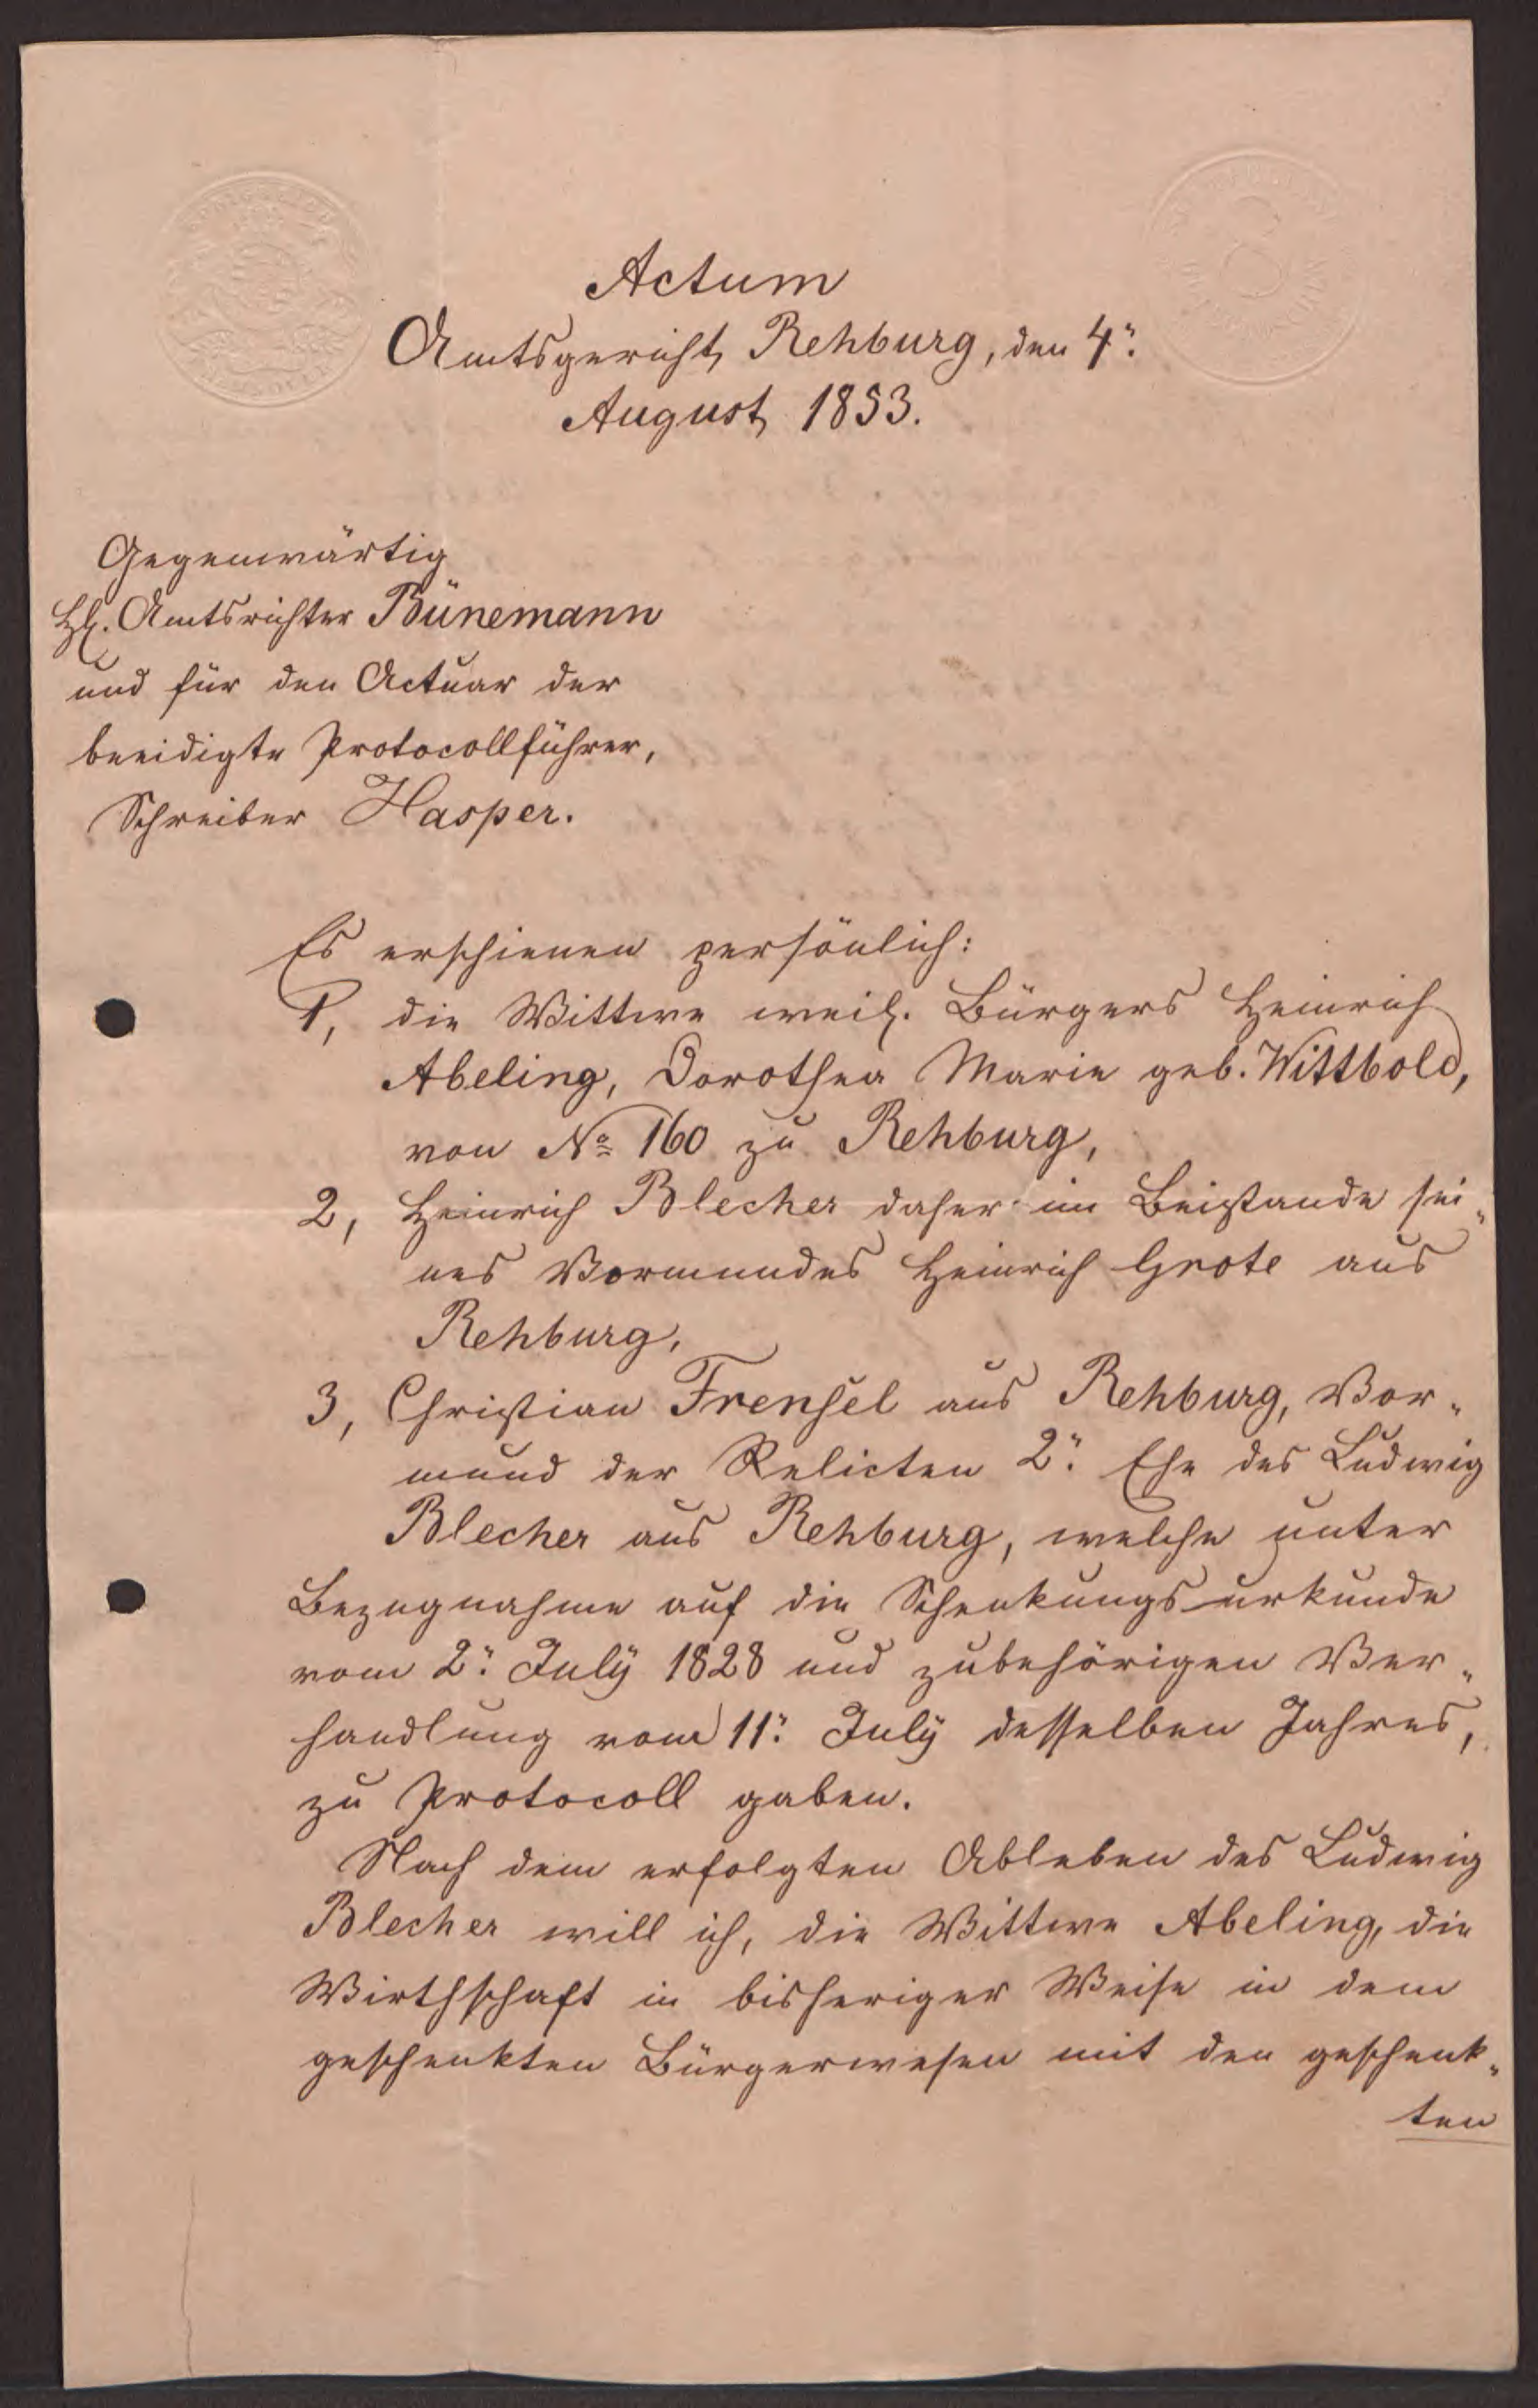 Actum
Amtsgericht Rehburg, den 4ᵗ.
August 1853.
Gegenwärtig
H. Amtsrichter Bünemann
und für den Actuar der
beeidigte Protocollführer,
Schreiber Hasper.
Es erschienen persönlich:
1, die Wittwe weil. Bürgers Heinrich
Abeling, Dorothea Marie geb. Wittbold,
von No 160 zu Rehburg,
2, Heinrich Blecher daher im Beistande sei„
nes Vormundes Heinrich Grote aus
Rehburg,
3, Christian Frensel aus Rehburg, Vor„
mund der Relicten 2ʳ. Ehe des Ludwig
Blecher aus Rehburg, welche unter
Bezugnahme auf die Schenkungsurkunde
vom 2ᵗ. July 1828 und zubehörigen Ver„
handlung vom 11ᵗ. July desselben Jahres,
zu Protocoll gaben.
Nach dem erfolgten Ableben des Ludwig
Blecher will ich, die Wittwe Abeling, die
Wirthschaft in bisheriger Weise in dem
geschenkten Bürgerwesen mit den geschenk„
ten